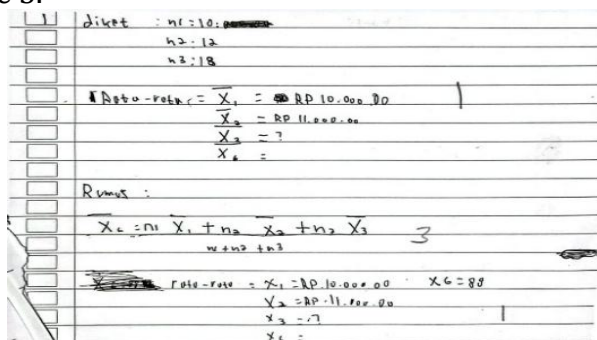 1 diket : n1 : 10 :
n2 : 12
n3 : 18
Rata-rata = X̄₁ = RP 10.000.00 1
X̄₂ = RP 11.000.00
X̄₃ = ?
X̄ =
Rumus :
= n1 X̄₁ + n₂ X̄₂ + n₃ X̄₃ 3
n1 + n2 + n3
rata-rata = X₁ = RP. 10.000 00
X₂ = RP. 11. 00 1
X₃ = ?
=